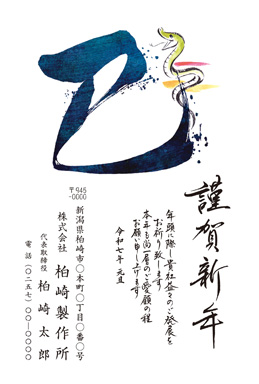 巳
謹賀新年
年頭に際し貴社益々のご発展を
お祈り致します
本年も尚一層のご愛顧の程
お願い申し上げます
令和七年 元旦
〒945
-0000
新潟県柏崎市〇本町〇丁目〇番〇号
株式会社 柏崎製作所
代表取締役 柏崎太郎
電話(〇二五七)〇〇―〇〇〇〇